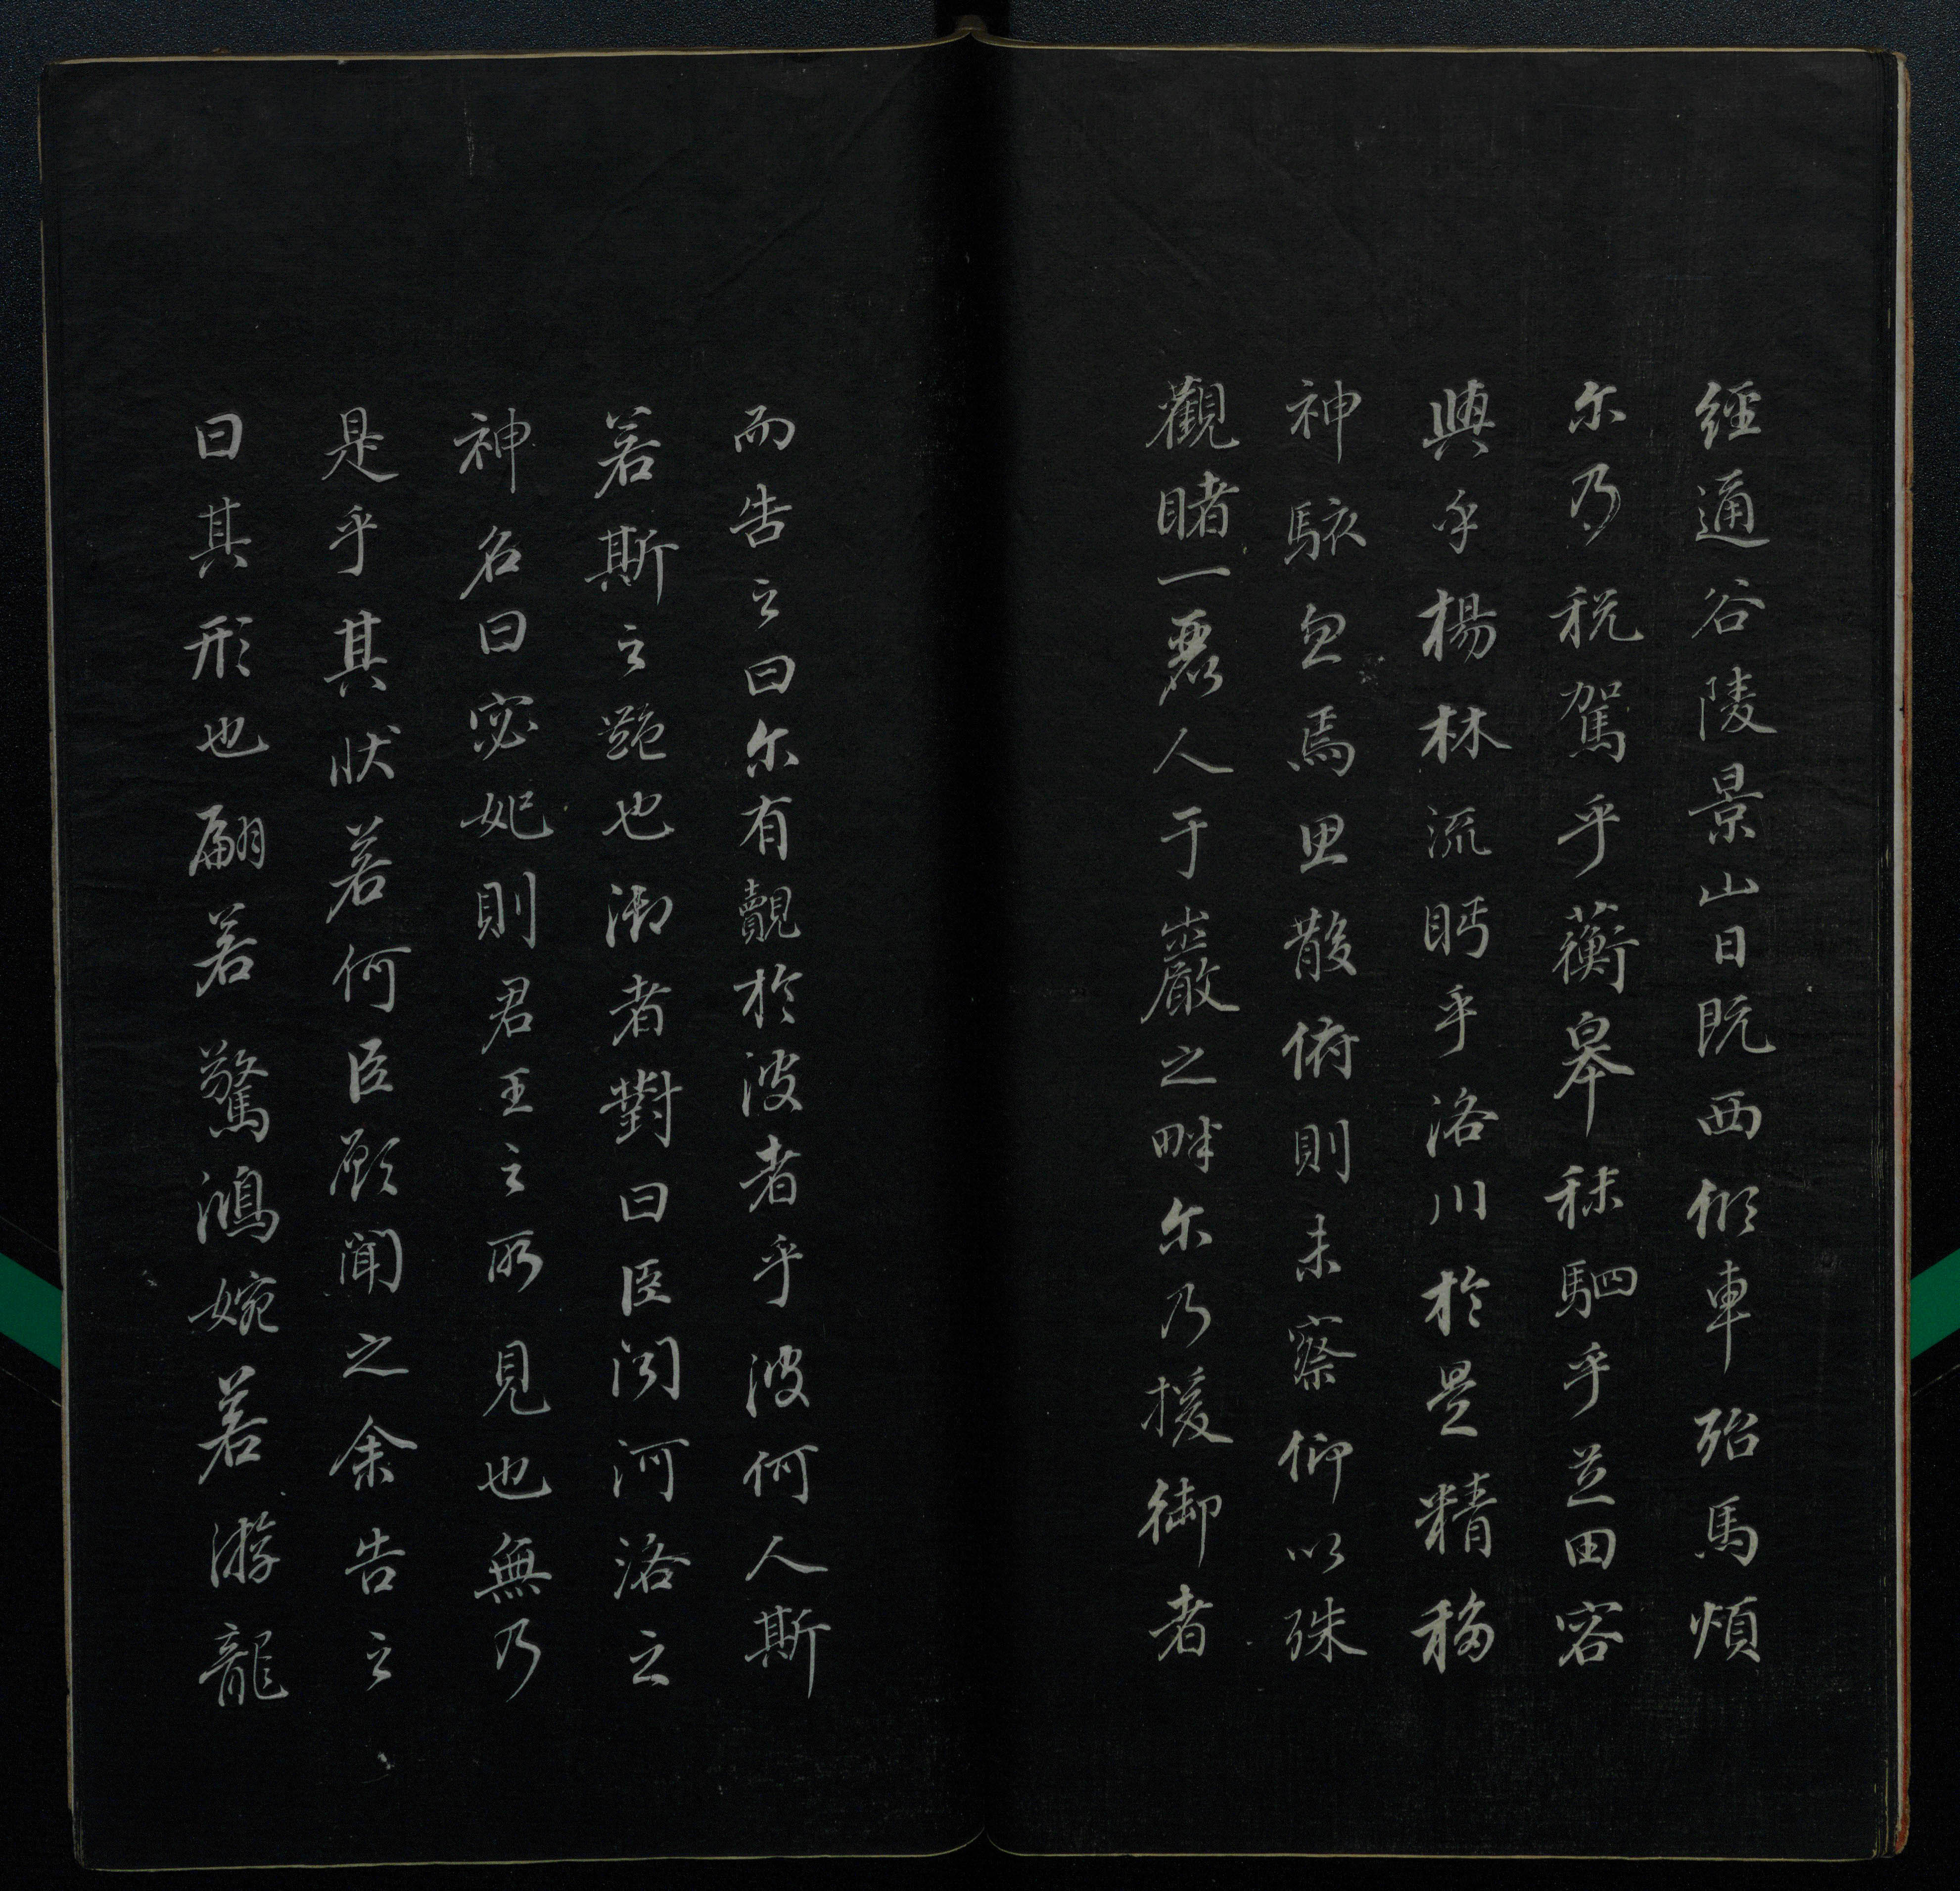 經通谷陵景山日既西傾車殆馬煩
尔乃税駕乎蘅皋秣駟乎芝田容
與乎楊林流眄乎洛川於是精移
神駭忽焉思散俯則未察仰以殊
觀睹一麗人于巖之畔尔乃援御者
而告之曰尔有覿於彼者乎彼何人斯
若斯之艷也御者對曰臣聞河洛之
神名曰宓妃則君王之所見也無乃
是乎其状若何臣願聞之余告之
曰其形也翩若驚鴻婉若游龍